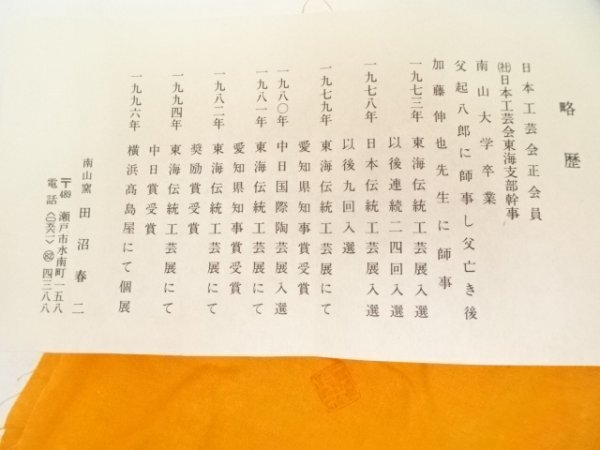 略歴
日本工芸会正会員
㈳日本工芸会東海支部幹事
南山大学卒業
父起八郎に師事し父亡き後
加藤伸也先生に師事
一九七三年 東海伝統工芸展入選
以後連続二四回入選
一九七八年 日本伝統工芸展入選
以後九回入選
一九七九年 東海伝統工芸展にて
愛知県知事賞受賞
一九八〇年 中日国際陶芸展入選
一九八一年 東海伝統工芸展にて
愛知県知事賞受賞
一九八二年 東海伝統工芸展にて
奨励賞受賞
一九九四年 東海伝統工芸展にて
中日賞受賞
一九九六年 横浜髙島屋にて個展
南山窯 田沼春二
〒489 瀬戸市水南町一五八
電話(〇五六一)(82)四三八八